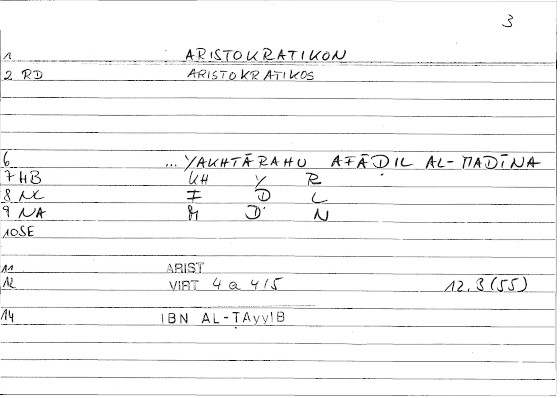 3
1 ARISTOKRATIKON
2 RD ARISTOKRATIKOS
6 ... YAKHTĀRAHU AFĀḌIL AL-MADĪNA
7 HB KH Y R
8 NC F D L
9 NA M D N
10 SE
11 ARIST
12 VIRT 4 a 4/5 12.3(55)
14 IBN AL-ṬAyyIB